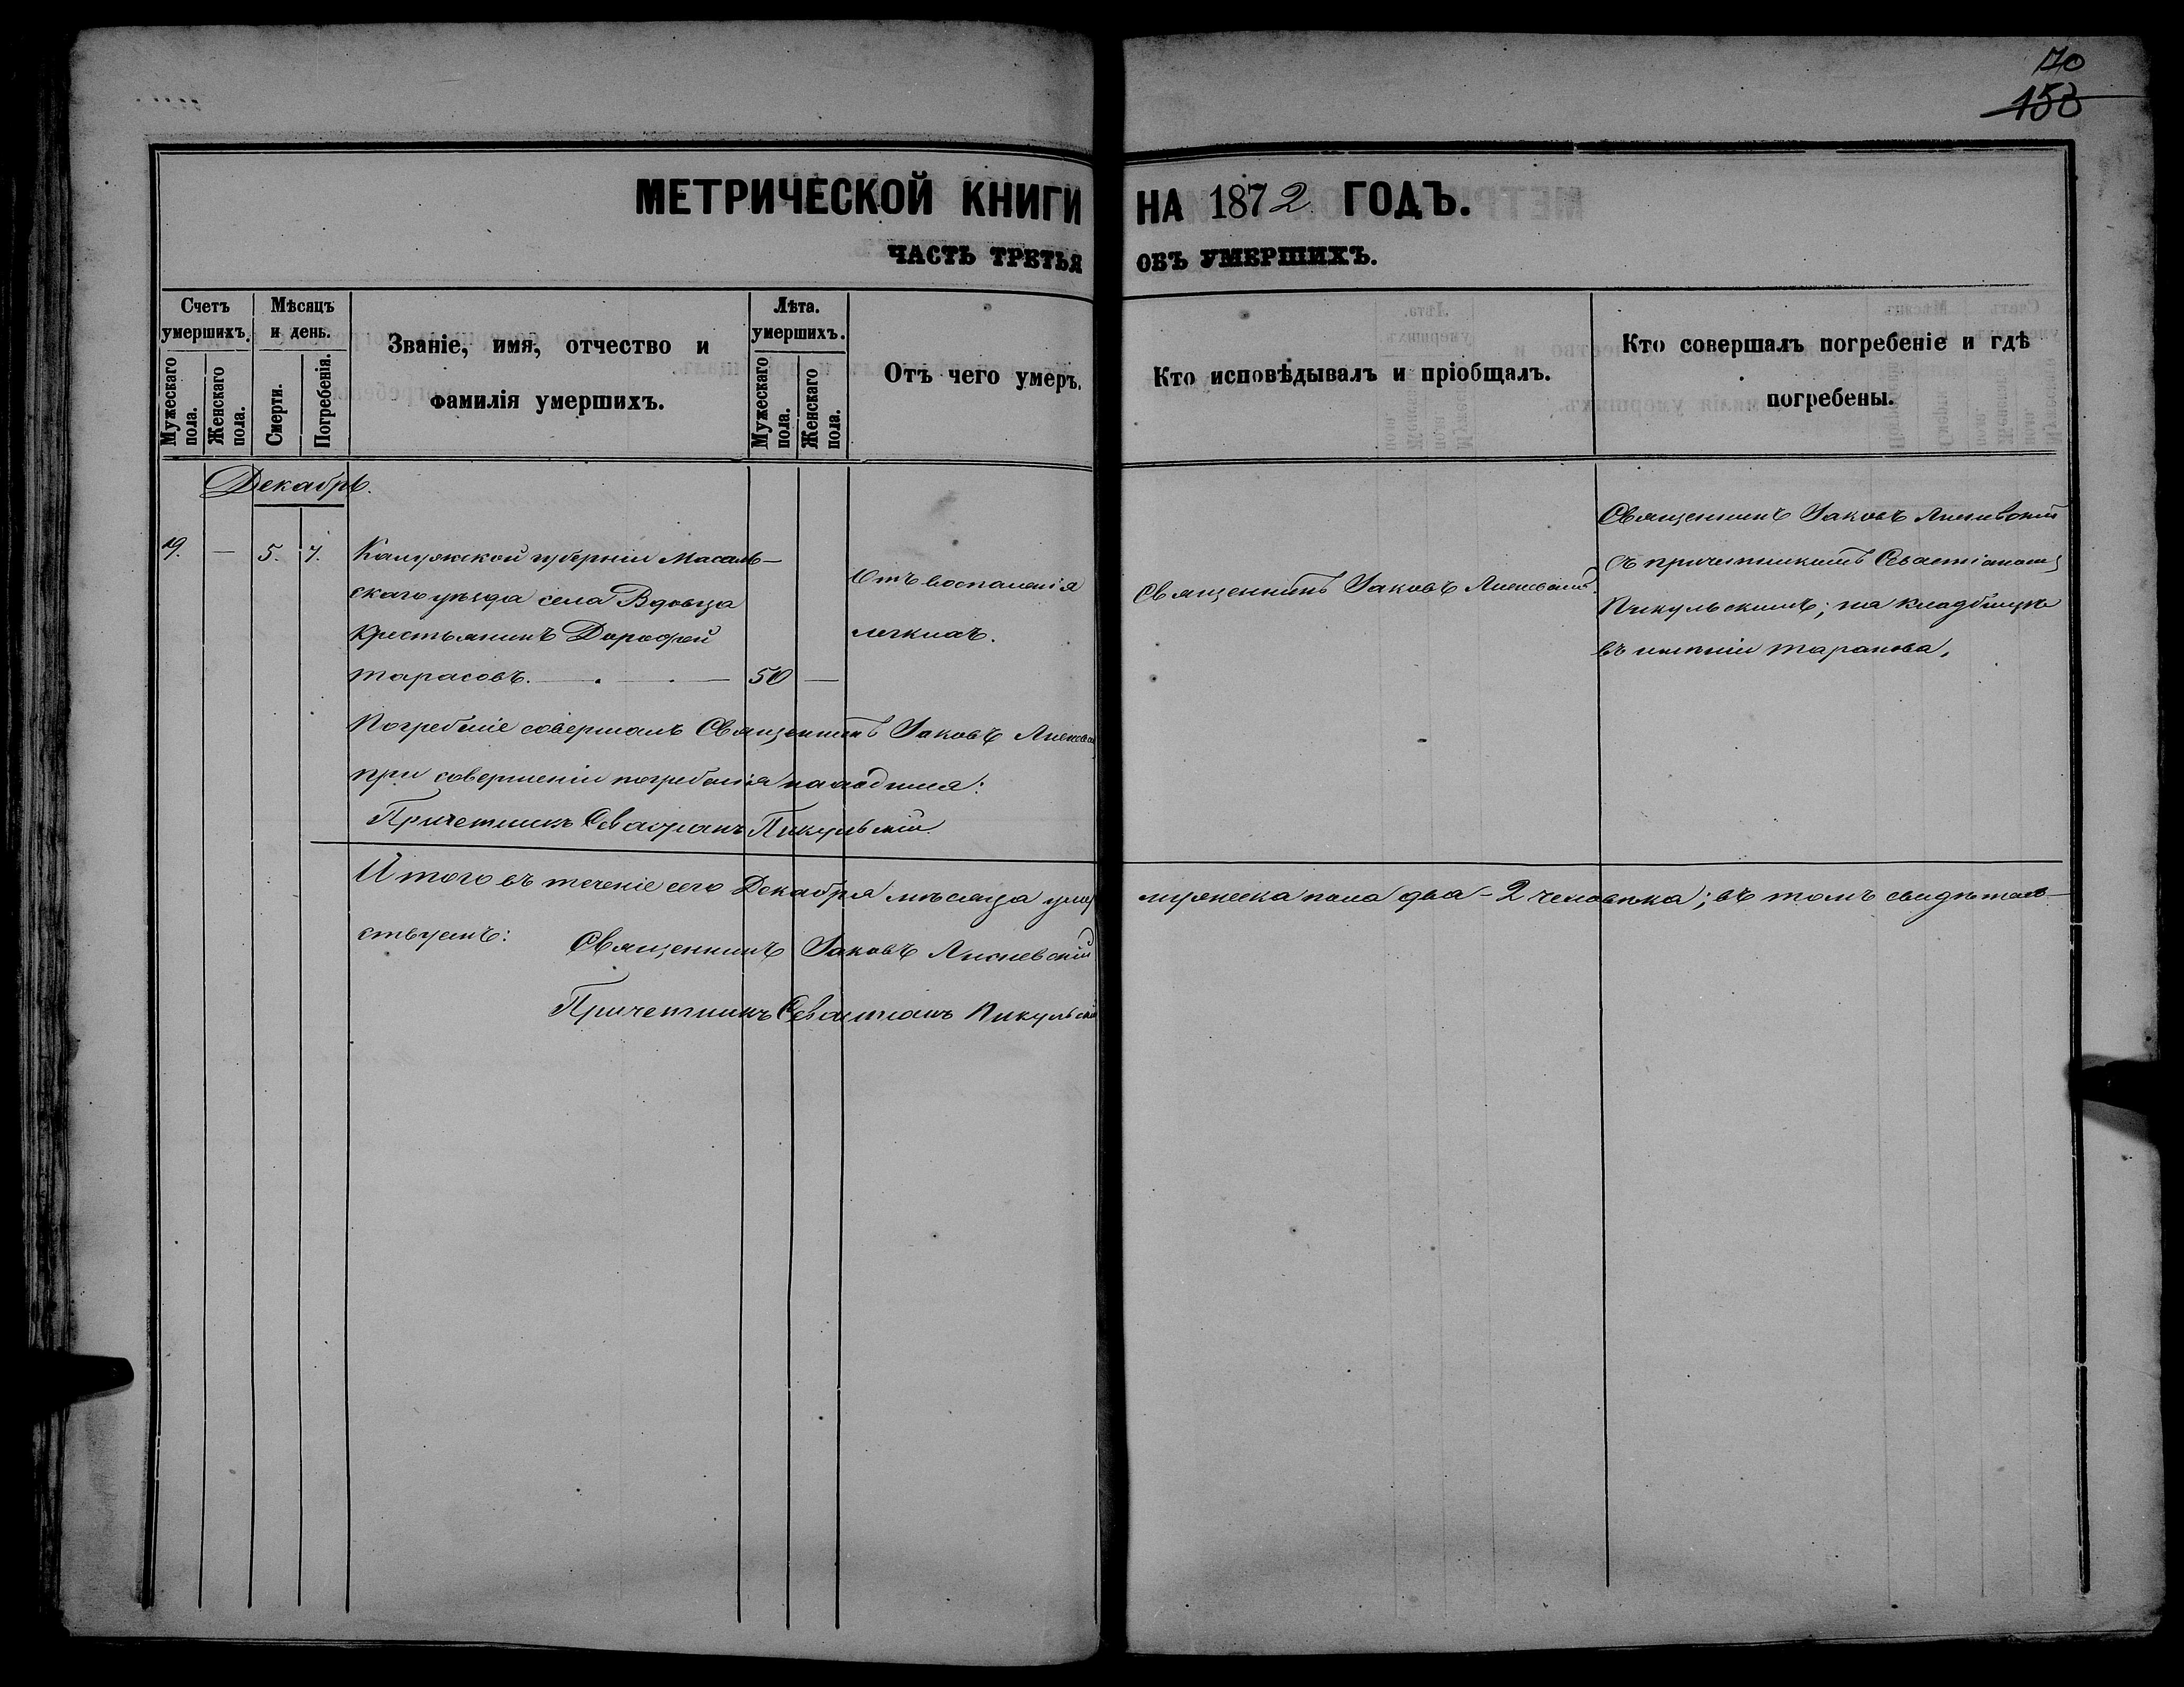 70
158
МЕТРИЧЕСКОЙ КНИГИ НА 1872 ГОДЪ.
ЧАСТЬ ТРЕТЬЯ ОБЪ УМЕРШИХЪ.
Счетъ умершихъ.
Мужескаго пола.
Женскаго пола.
Мѣсяцъ и день.
Смерти.
Погребенія.
Званіе, имя, отчество и
фамилія умершихъ.
Лѣта. умершихъ.
Мужескаго пола.
Женскаго пола.
Отъ чего умеръ.
Кто исповѣдывалъ и пріобщалъ.
Кто совершалъ погребеніе и гдѣ
погребены.
Декабрь.
9. — 5. 7. Калужской губерніи Масаль-
скаго уѣзда села Вдовца
крестьянинъ Дорофей
Тарасовъ. — 50 —
Отъ воспаленія
легкихъ.
Священникъ Іаковъ
Священникъ Іаковъ
съ причетникомъ Севастіаномъ
Пикульскимъ; на кладбищѣ
въ имѣніи Таранова.
Погребеніе совершалъ Священникъ Іаковъ
при совершеніи погребенія находился:
Причетникъ Севастіанъ Пикульскій
Итого въ теченіе сего Декабря мѣсяца умер мужеска пола два - 2 человѣка; въ томъ свидѣтель-
ствуемъ: Священникъ Іаковъ
Причетникъ Севастіанъ Пикульскій